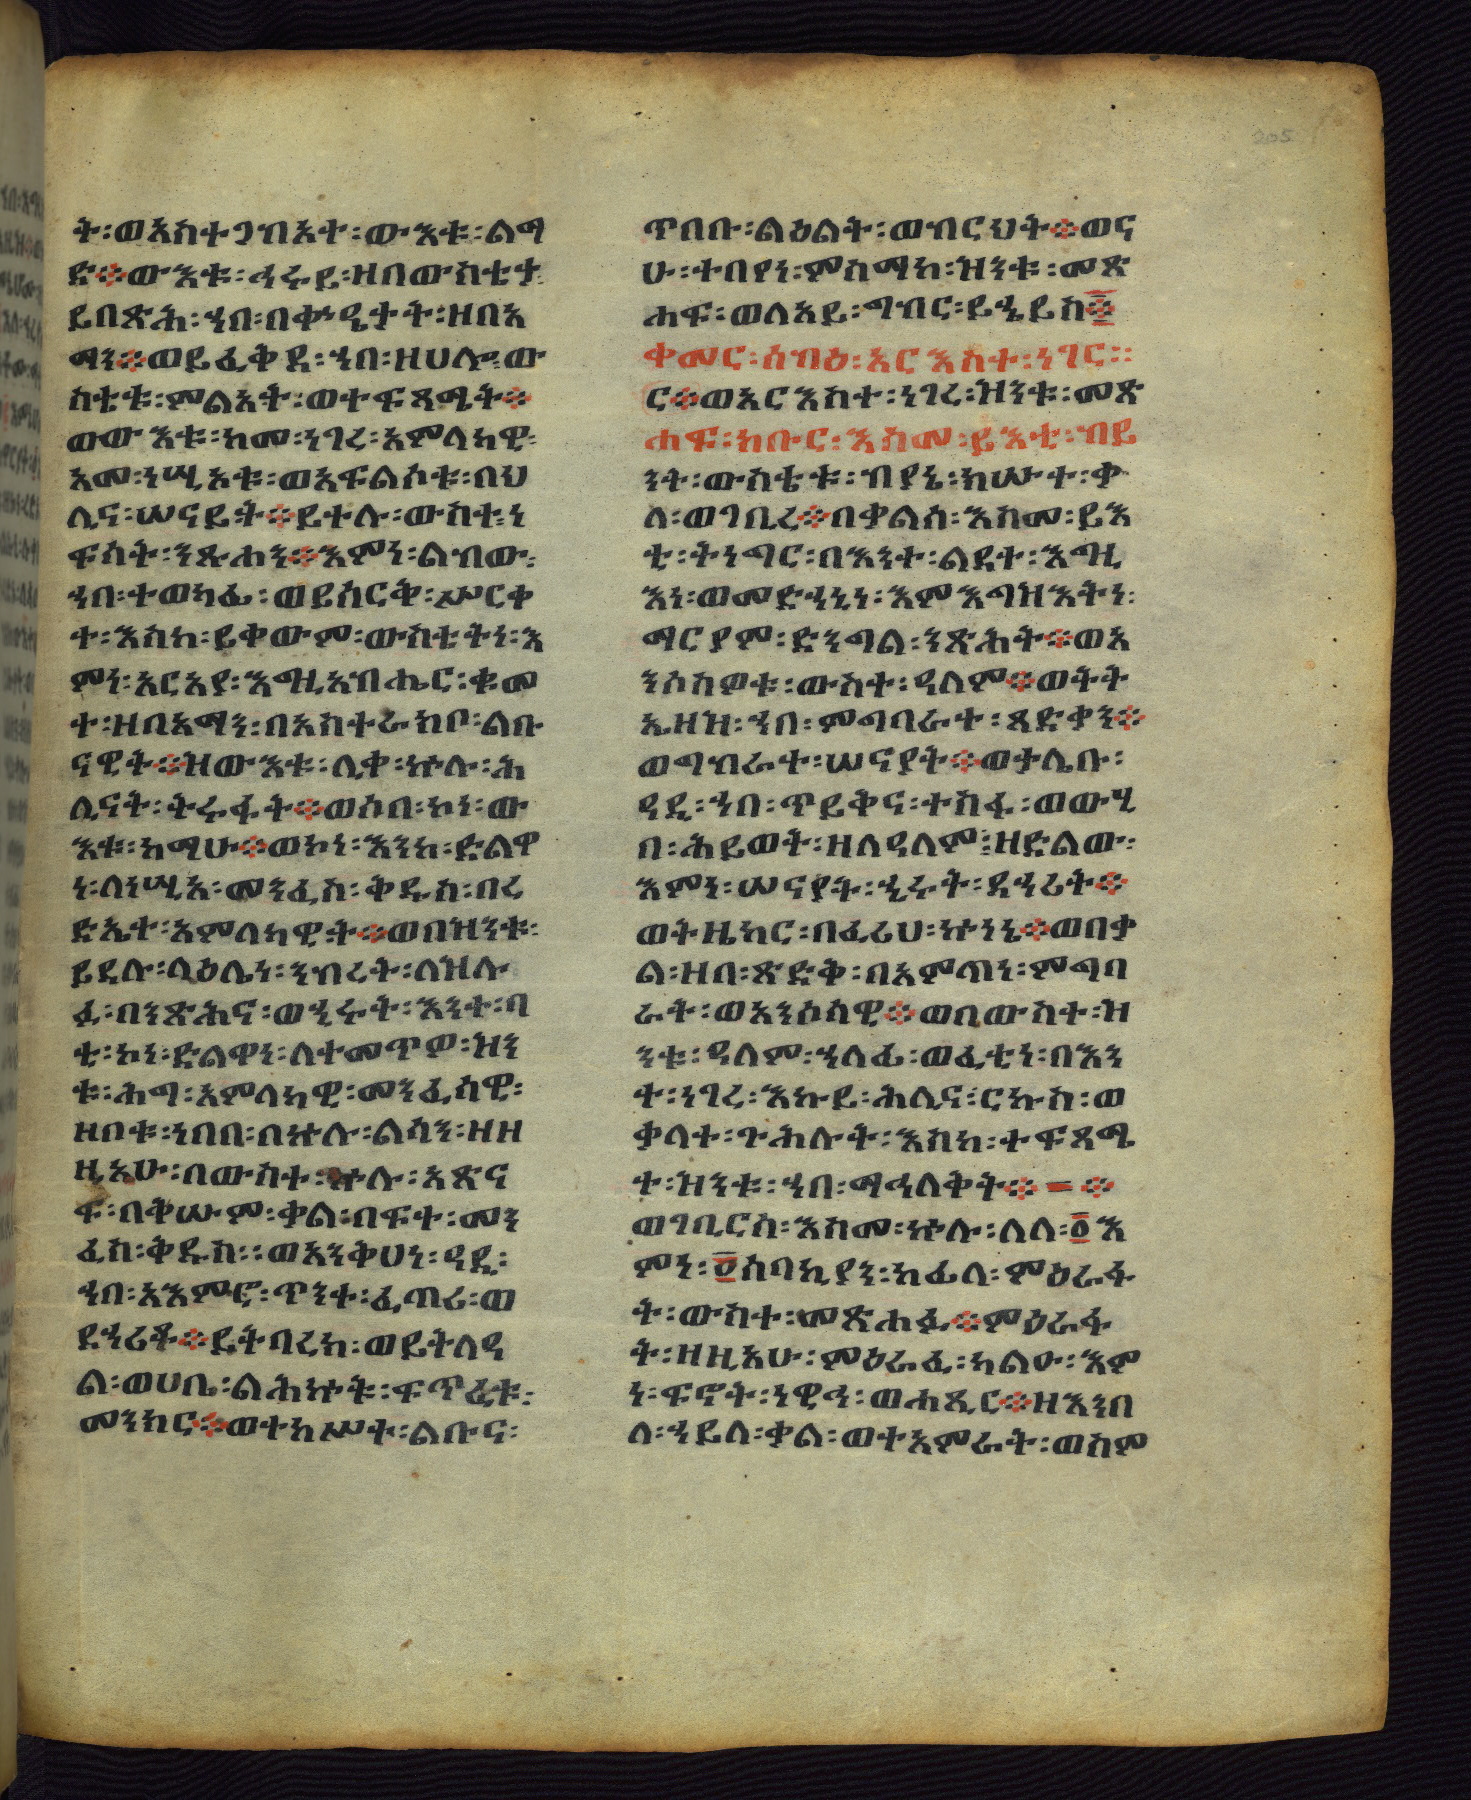 ት፡ወአስተጋብአተ፡ውእቱ፡ልማ
ድ፨ውእቱ፡ኃሩይ፡ዘበውስቴታ
ይበጽሕ፡ኀበ፡በቍዔታት፡ዘበአ
ማን፨ወይፈቅደ፡ኀበ፡ዘሀሎ፡ው
ስቴቱ፡ምልአት፡ወተፍጻሜት፨
ወውእቱ፡ከመ፡ነገረ፡አምላካዊ፡
አመ፡ነሢአቱ፡ወአፍልሶቱ፡በህ
ሊና፡ሠናይት፨ይተሉ፡ውስተ፡ነ
ፍስት፡ንጹሐን፨እምነ፡ልብው፡
ኀበ፡ተወካፊ፡ወይሰርቅ፡ሥርቀ
ተ፡እስከ፡ይቀውም፡ውስቴትነ፡እ
ምነ፡አርአያ፡እግዚአብሔር፡ቁመ
ተ፡ዘበአማን፡በአስተራክቦ፡ልቡ
ናዊት፨ዝውእቱ፡ሊቀ፡ኵሉ፡ሕ
ሊናት፡ትሩፋት፨ወሶበ፡ኮነ፡ው
እቱ፡ከማሁ፨ወኮነ፡እንከ፡ድልዋ
ነ፡ለነሢአ፡መንፈስ፡ቅዱስ፡በረ
ድኤተ፡አምላካዊት፨ወበዝንቱ፡
ይደሉ፡ላዕሌነ፡ንብረት፡ለዝሉ
ፉ፡በንጽሕና፡ወኂሩት፡እንተ፡ባ
ቲ፡ኮነ፡ድልዋነ፡ለተመጥዎ፡ዝን
ቱ፡ሕግ፡አምላካዊ፡መንፈሳዊ፡
ዘቦቱ፡ነበበ፡በኵሉ፡ልሳን፡ዘዘ
ዚአሁ፡በውስተ፡ኵሉ፡አጽና
ፍ፡በቅሡም፡ቀል፡በፍተ፡መን
ፈስ፡ቅዱስ፡፡ወአንቅሀነ፡ዓዲ፡
ኀበ፡አእምሮ፡ጥንተ፡ፈጣሪ፡ወ
ደኃሪቶ፨ይትባረክ፡ወይትለዓ
ል፡ወሀቤ፡ልሕኵት፡ፍጥረቱ፡
መንክር፨ወተከሥተ፡ልቡና፡
ጥበቡ፡ልዕልት፡ወብርህት፨ወና
ሁ፡ተበየነ፡ምስማክ፡ዝንቱ፡መጽ
ሐፍ፡ወለአይ፡ግብር፡ይኄይስ፨
ቀመር፡ሰብዕ፡አርእስተ፡ነገር፡፡
ር፨ወአርእስተ፡ነገረ፡ዝንቱ፡መጽ
ሐፍ፡ክቡር፡እስመ፡ይእቲ፡ብይ
ንት፡ውስቴቱ፡ብያኔ፡ከሡተ፡ቃ
ለ፡ወገቢረ፨በቃልሰ፡እስመ፡ይእ
ቲ፡ትነግር፡በእንተ፡ልደተ፡እግዚ
እነ፡ወመድኃኒነ፡እምእግዝእትነ፡
ማርያም፡ድንግል፡ንጽሕት፨ወአ
ንሶስዎቱ፡ውስተ፡ዓለም፨ወትት
ኤዘዝ፡ኀበ፡ምግባራተ፡ጻድቃን፨
ወግብራተ፡ሠናያት፨ወታሌቡ፡
ዓዲ፡ኀበ፡ጥይቅና፡ተስፋ፡ወውሂ
በ፡ሕይወት፡ዘለዓለም፡ዘድልው፡
እምነ፡ሠናያት፡ኂሩት፡ደኃሪት፨
ወትዜከር፡በፈሪህ፡ኵነኔ፨ወበቃ
ል፡ዘበ፡ጽድቅ፡በአምጣነ፡ምግባ
ራት፡ወአንሶሳዊ፨ወበውስተ፡ዝ
ንቱ፡ዓለም፡ኀላፊ፡ወፈቲነ፡በእን
ተ፡ነገረ፡እኩይ፡ሕሊና፡ርኩስ፡ወ
ቃላተ፡ጉሕሉት፡እስከ፡ተፍጻሜ
ተ፡ዝንቱ፡ኀበ፡ማኅለቅት፨ = ፨
ወገቢርሰ፡እስመ፡ኵሉ፡ለለ፡፩እ
ምነ፡፬ሰባኪያን፡ከፊለ፡ምዕራፋ
ት፡ውስተ፡መጽሐፉ፨ምዕራፋ
ት፡ዘዚአሁ፡ምዕራፈ፡ካልዑ፡እም
ነ፡ፍኖት፡ነዊኃ፡ወሐጺር፨ዘእንበ
ለ፡ኀይለ፡ቃል፡ወተአምራት፡ወስም